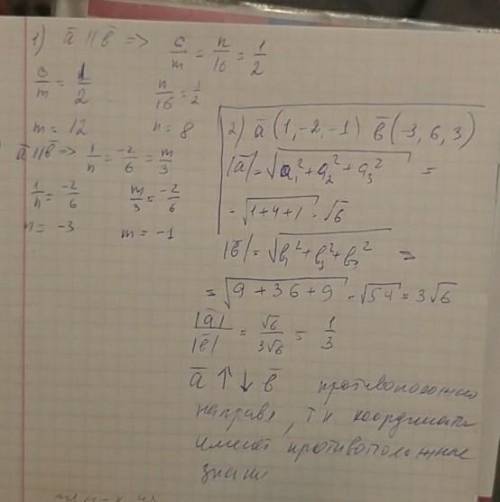 1) a̅ || b̅ => 6/m = n/16 = 1/2
6/m = 1/2    n/16 = 1/2
m = 12    n = 8
a̅ || b̅ => 1/n = -2/6 = m/3
1/n = -2/6    m/3 = -2/6
n = -3    m = -1
2) a̅ (1, -2, -1) b̅ (-3, 6, 3)
|a̅| = √(a₁² + a₂² + a₃²) =
= √(1+4+1) = √6
|b̅| = √(b₁² + b₂² + b₃²) =
= √(9 + 36 + 9) = √54 = 3√6
|a̅|/|b̅| = √6/3√6 = 1/3
a̅ ↑↓ b̅ противоположно
направл, тк координаты
имеют противоположные
знаки